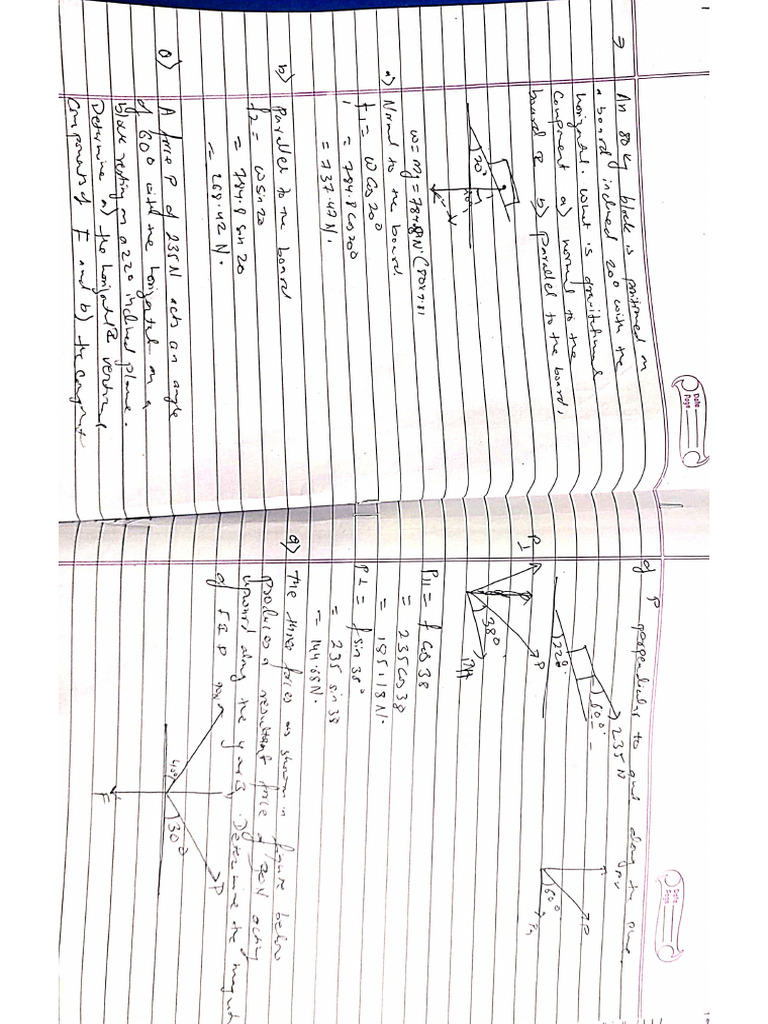 Date
Page
7) An 80 kg block is positioned on
a board inclined 20° with the
horizontal. What is gravitational
component a) normal to the
board & b) parallel to the board.
20°
w = mg = 784.8 N (80x9.81
a) Normal to the board
f1 = w cos 20°
= 784.8 cos 20°
= 737.47 N.
b) parallel to the board
f2 = w sin 20
= 784.8 sin 20
= 268.42 N.
8) A force P of 235 N acts an angle
of 60° with the horizontal on a
block resting on a 22° inclined plane.
Determine a) the horizontal & vertical
components of F and b) the
Date
Page
of P perpendicular to and along the plane.
22°
60°
235 N
60°
P
P⊥
38°
P
P||
P|| = f cos 38
= 235 cos 38
= 185.18 N.
P⊥ = f sin 38°
= 235 sin 38
= 144.68 N.
9) The three forces as shown in figure below
produces a resultant force of 20N acting
upward along the y axis. Determine the
of F & P
40°
30°
P
F